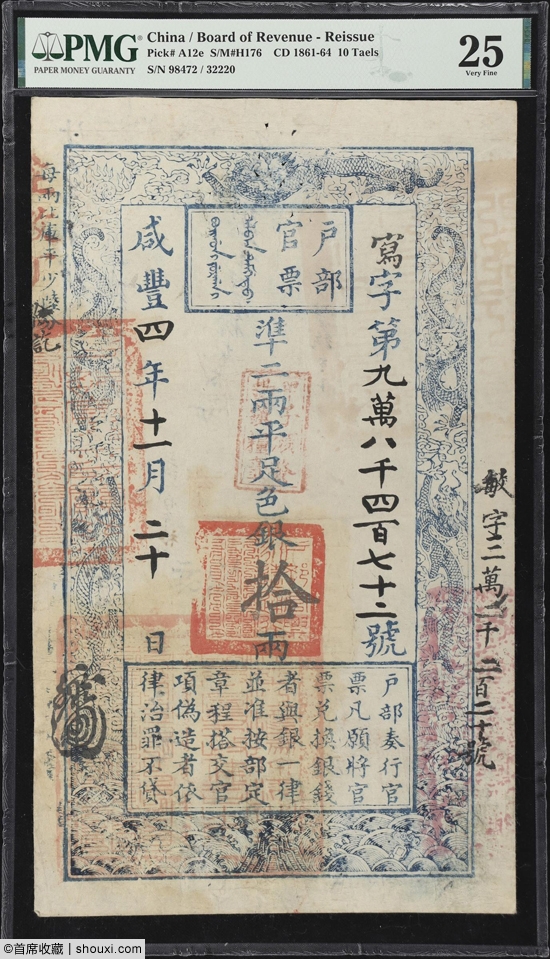 PMG
PAPER MONEY GUARANTY
China / Board of Revenue - Reissue
Pick# A12e S/M#H176 CD 1861-64 10 Taels
S/N 98472 / 32220
25
Very Fine
戶部
官票
敏字三萬二千二百二十號
寫字第九萬八千四百七十二號
準二兩平足色銀拾兩
咸豐四年十一月二十日
每兩庫平少
記
戶部奏行官
票凡願將官
票兌換銀錢
者與銀一律
並准按部定
章程搭交官
項偽造者依
律治罪不貸
©首席收藏 | shouxi.com